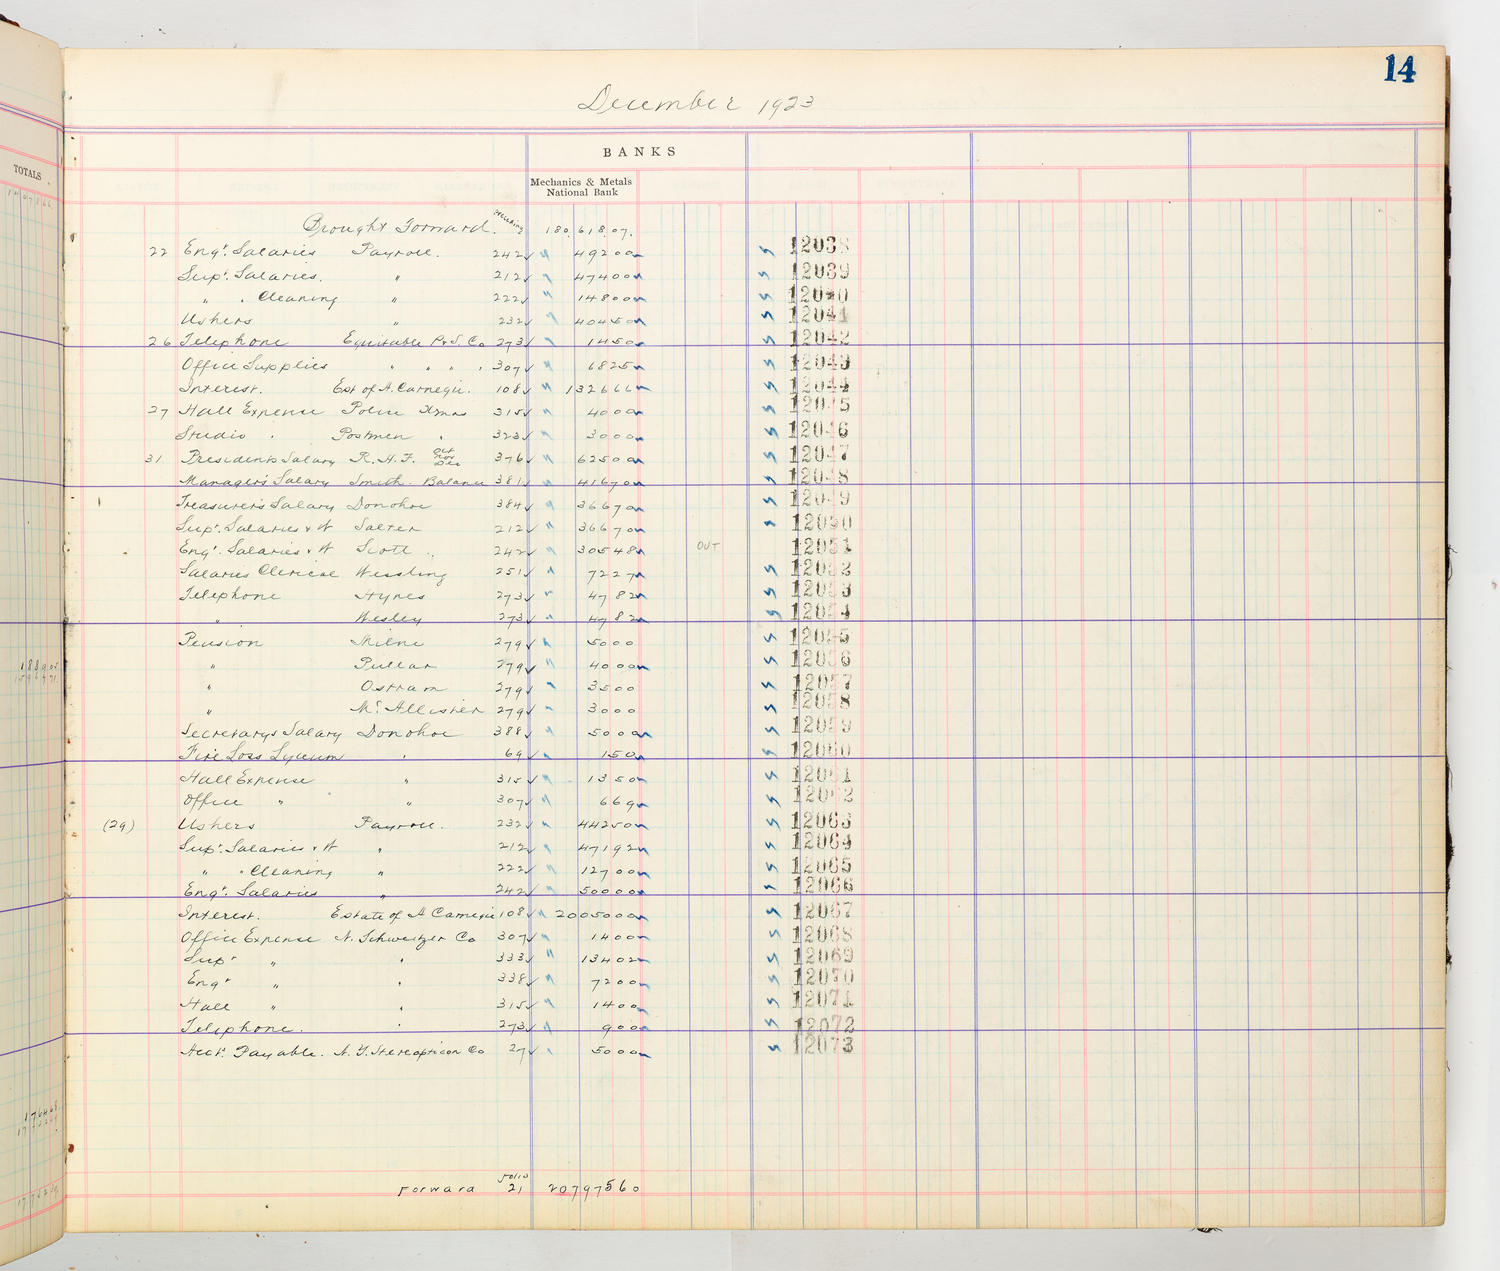 14
December 1923
TOTALS
BANKS
Mechanics & Metals
National Bank
Brought Forward. 180,618.07.
22 Engr. Salaries Payroll. 242 " 49200 12038
Supt. Salaries. " 212 " 47400 12039
" . Cleaning " 222 " 14800 12040
Ushers " 232 " 40450 12041
26 Telephone Equitable P.&S. Co 273 " 1450 12042
Office Supplies " " " " 307 " 6825 12043
Interest. Est of A. Carnegie. 108 " 132666 12044
27 Hall Expense Police Xmas 315 " 4000 12045
Studio . Postmen . 323 " 3000 12046
31 Presidents Salary R.H.F. Oct Nov Dec 376 " 62500 12047
Manager's Salary Smith. Balance 381 " 41670 12048
Treasurer's Salary Donohoe 384 " 36670 12049
Supt. Salaries & W Salter 212 " 36670 12050
Engr. Salaries & W Scott 242 " 30548 OUT 12051
Salaries Clerical Wessling 251 " 7227 12052
Telephone Hynes 273 " 4782 12053
" Wesley 273 " 4782 12054
Pension Milne 279 " 5000 12055
" Pullar 279 " 4000 12056
" Ostram 279 " 3500 12057
" McAllister 279 " 3000 12058
Secretarys Salary Donohoe 388 " 5000 12059
Fire Loss Lyceum " 69 " 150 12060
Hall Expense " 315 " 1350 12061
Office " " 307 " 669 12062
(29) Ushers Payroll. 232 " 44250 12063
Supt. Salaries & W " 212 " 47192 12064
" " Cleaning " 222 " 12700 12065
Engr. Salaries " 242 " 50000 12066
Interest. Estate of A Carnegie 108 " 2005000 12067
Office Expense N. Schweitzer Co 307 " 1400 12068
Supt " " 333 " 13402 12069
Engr " " 338 " 7200 12070
Hall " " 315 " 1400 12071
Telephone. " 273 " 900 12072
Acct. Payable. N.Y. Stereopticon Co 27 " 5000 12073
Forward Folio 21 20797560